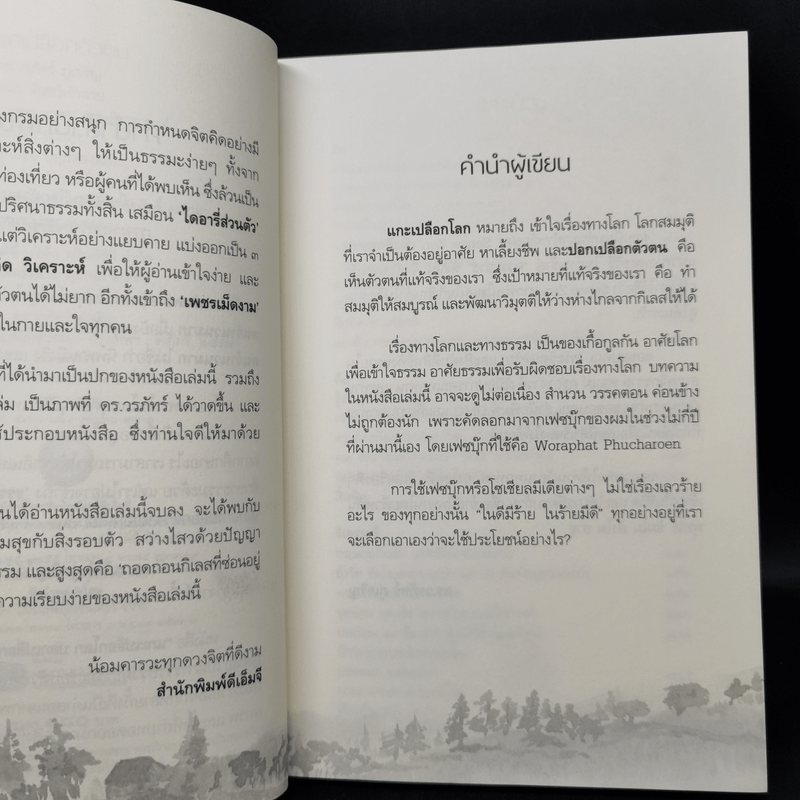 งกรมอย่างสนุก การกำหนดจิตคิดอย่างมี
ะห์สิ่งต่างๆ ให้เป็นธรรมะง่ายๆ ทั้งจาก
ท่องเที่ยว หรือผู้คนที่ได้พบเห็น ซึ่งล้วนเป็น
ปริศนาธรรมทั้งสิ้น เสมือน ‘ไดอารี่ส่วนตัว’
แต่วิเคราะห์อย่างแยบคาย แบ่งออกเป็น ๓
ิด วิเคราะห์ เพื่อให้ผู้อ่านเข้าใจง่าย และ
ตัวตนได้ไม่ยาก อีกทั้งเข้าถึง ‘เพชรเม็ดงาม’
ในกายและใจทุกคน
ที่ได้นำมาเป็นปกของหนังสือเล่มนี้ รวมถึง
ล่ม เป็นภาพที่ ดร.วรภัทร์ ได้วาดขึ้น และ
ช้ประกอบหนังสือ ซึ่งท่านใจดีให้มาด้วย
นได้อ่านหนังสือเล่มนี้จบลง จะได้พบกับ
มสุขกับสิ่งรอบตัว สว่างไสวด้วยปัญญา
รรม และสูงสุดคือ ‘ถอดถอนกิเลสที่ซ่อนอยู่
ความเรียบง่ายของหนังสือเล่มนี้
น้อมคารวะทุกดวงจิตที่ดีงาม
สำนักพิมพ์ดีเอ็มจี
คำนำผู้เขียน
แกะเปลือกโลก หมายถึง เข้าใจเรื่องทางโลก โลกสมมุติ
ที่เราจำเป็นต้องอยู่อาศัย หาเลี้ยงชีพ และปอกเปลือกตัวตน คือ
เห็นตัวตนที่แท้จริงของเรา ซึ่งเป้าหมายที่แท้จริงของเรา คือ ทำ
สมมุติให้สมบูรณ์ และพัฒนาวิมุตติให้ว่างห่างไกลจากกิเลสให้ได้
เรื่องทางโลกและทางธรรม เป็นของเกื้อกูลกัน อาศัยโลก
เพื่อเข้าใจธรรม อาศัยธรรมเพื่อรับผิดชอบเรื่องทางโลก บทความ
ในหนังสือเล่มนี้ อาจจะดูไม่ต่อเนื่อง สำนวน วรรคตอน ค่อนข้าง
ไม่ถูกต้องนัก เพราะคัดลอกมาจากเฟซบุ๊กของผมในช่วงไม่กี่ปี
ที่ผ่านมานี้เอง โดยเฟซบุ๊กที่ใช้คือ Woraphat Phucharoen
การใช้เฟซบุ๊กหรือโซเชียลมีเดียต่างๆ ไม่ใช่เรื่องเลวร้าย
อะไร ของทุกอย่างนั้น “ในดีมีร้าย ในร้ายมีดี” ทุกอย่างอยู่ที่เรา
จะเลือกเอาเองว่าจะใช้ประโยชน์อย่างไร?